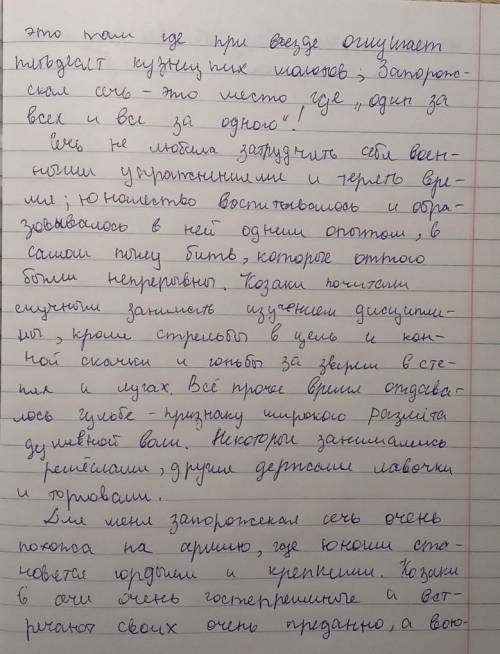 это там где при въезде оглушает
пятьдесят кузнецких молотов; Запорож-
ская сечь - это место, где „один за
всех и все за одного"!
Сечь не любила затруднять себя воен-
ными упражнениями и терять вре-
мя; юношество воспитывалось и обра-
зовывалось в ней одним опытом, в
самом пылу битв, которые оттого
были непрерывны. Козаки почитали
скучным занимать изучением дисципли-
ны, кроме стрельбы в цель и кон-
ной скачки и гоньбы за зверем в сте-
пях и лугах. Всё прочее время отдава-
лось гульбе - признаку широкого размёта
душевной воли. Некоторые занимались
ремёслами, другие держали лавочки
и торговали.
Для меня запорожская сечь очень
похожа на армию, где юноши ста-
новятся гордыми и крепкими. Козаки
в сечи очень гостеприимные и вст-
речают своих очень преданно, а вою-